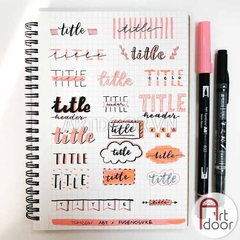 title title
title title
TITLE TITLE TITLE
TITLE title TITLE
title TITLE TITLE
header header header
TITLE title TITLE
TITLE title title
TITLE title title
TOMBOW ABT & FUDENOSUKE
Art door